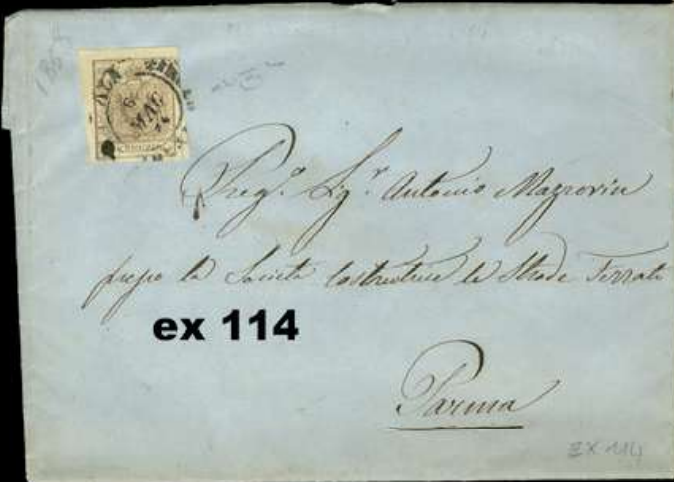 6
MAG
Preg.º Sig.r Antonio
presso la Società Costruttrice le Strade Ferrate
ex 114
Parma
EX 114